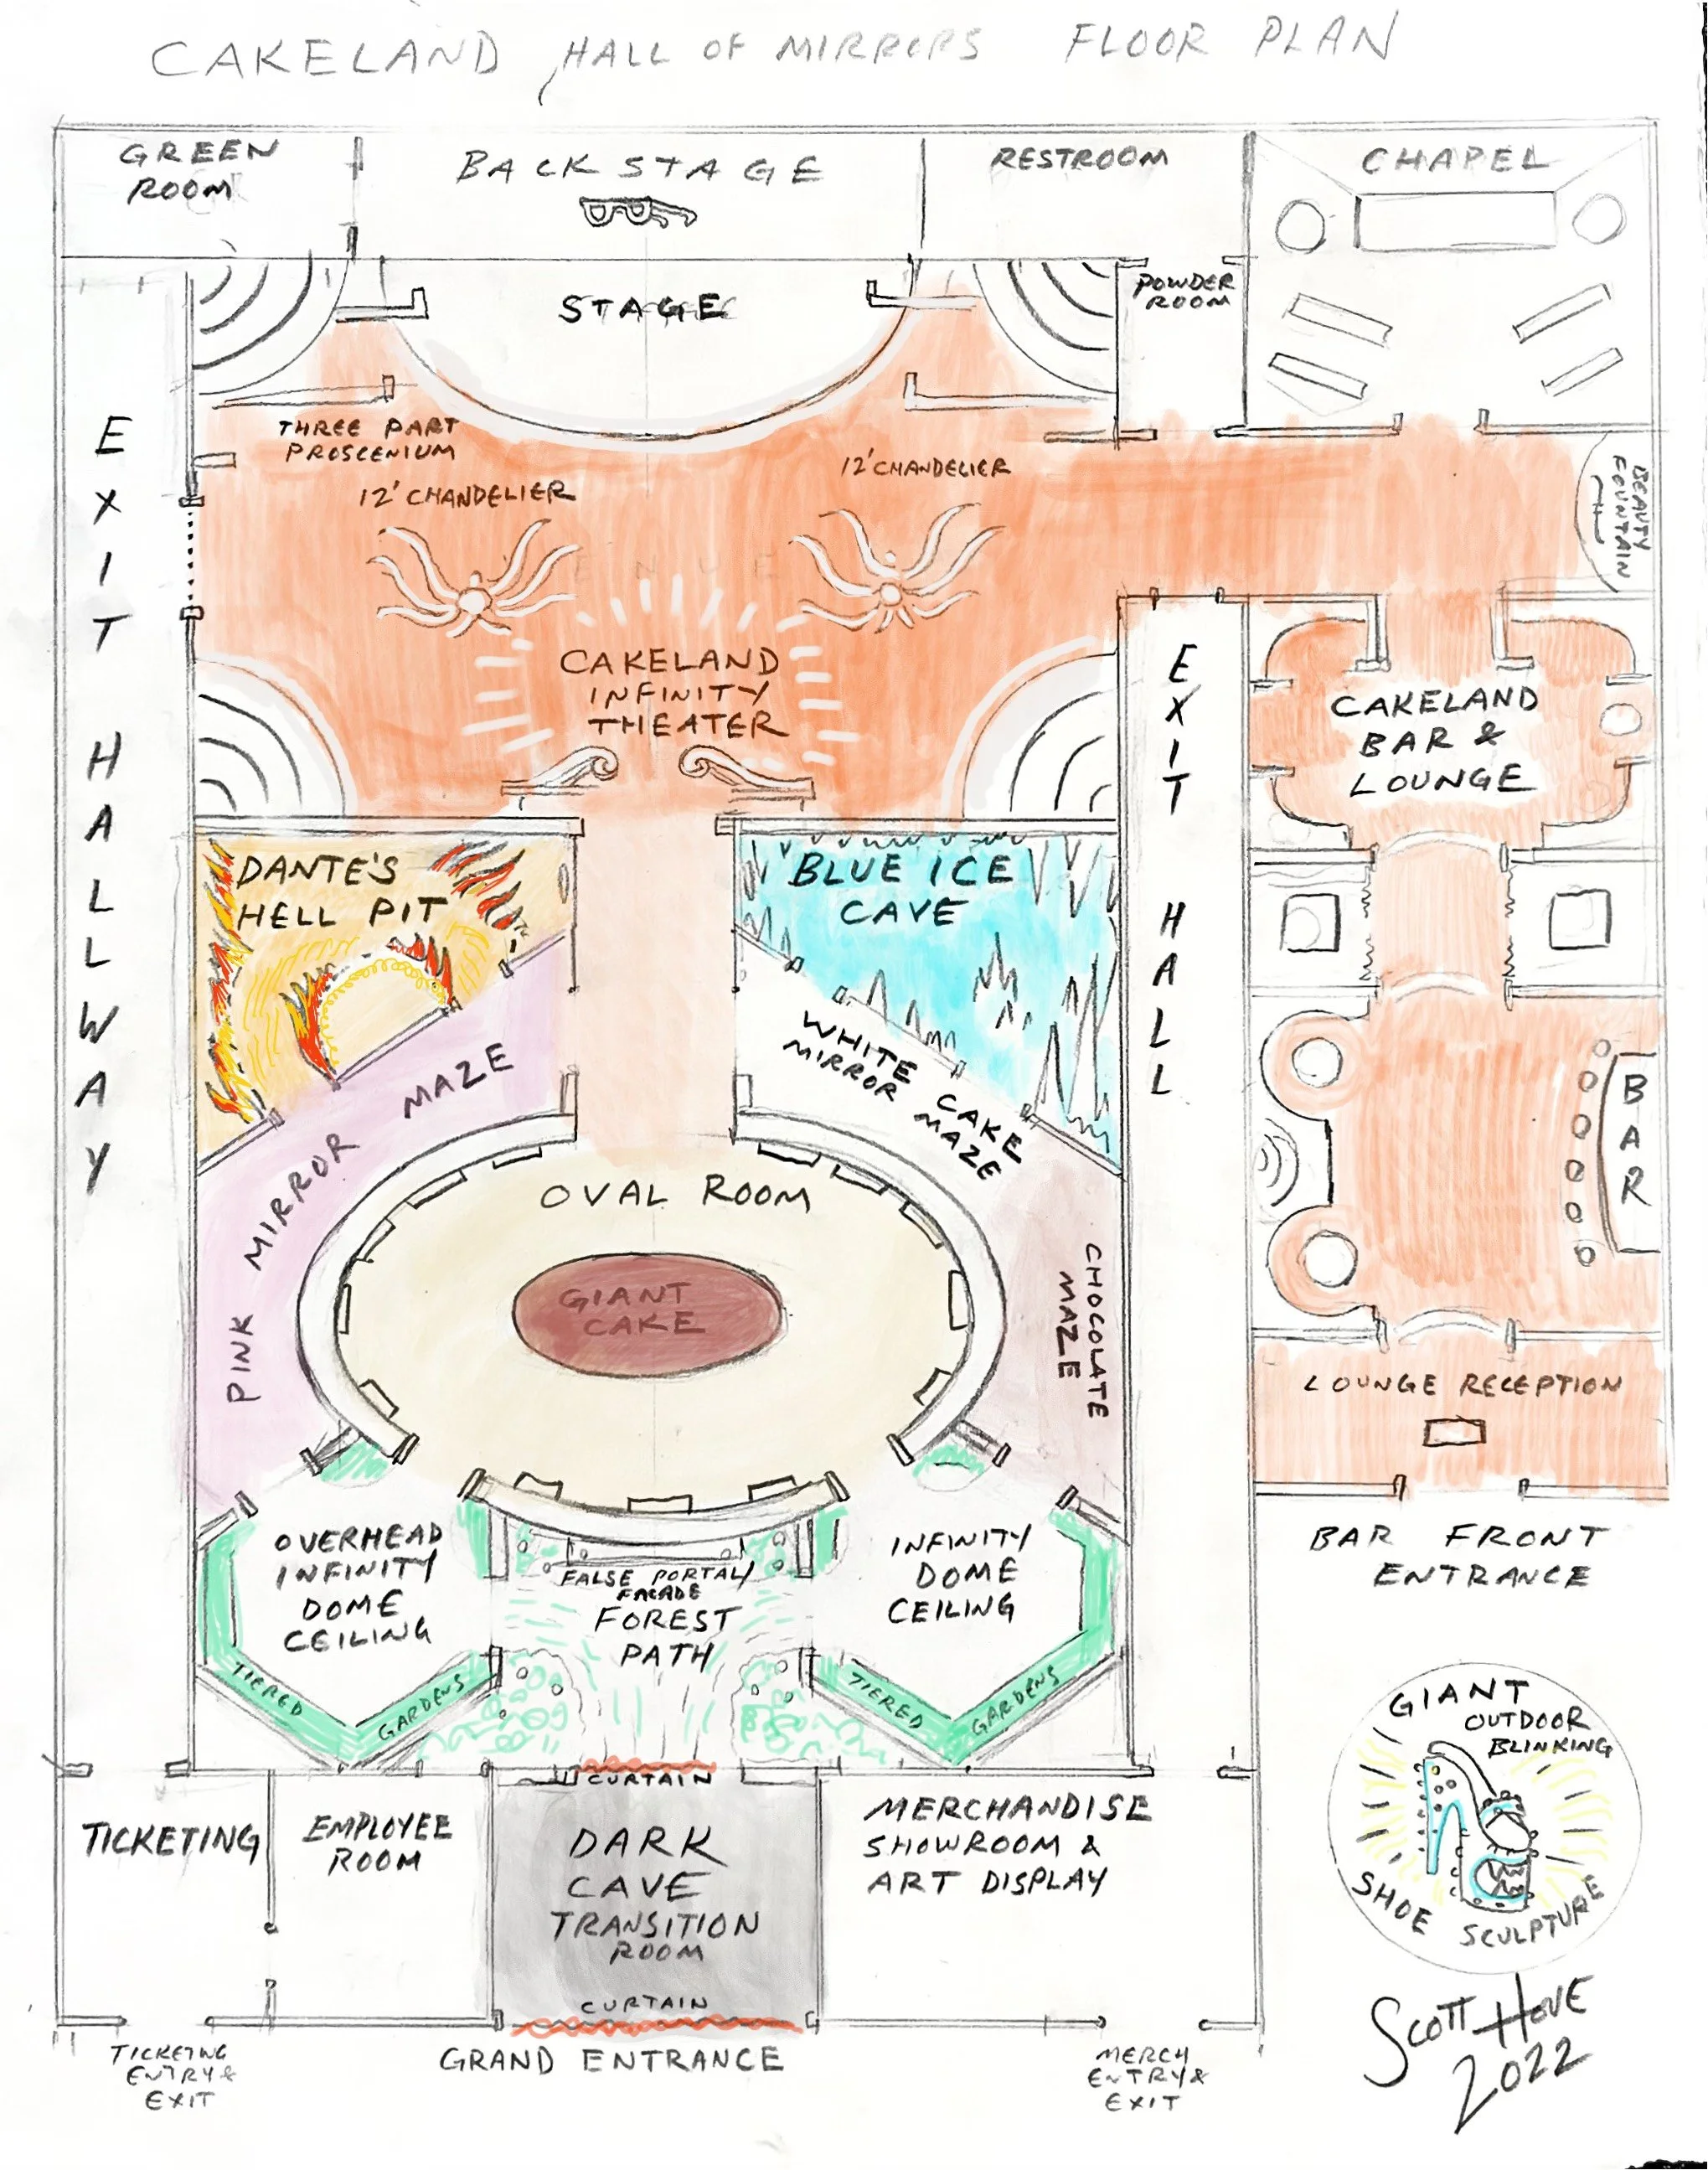 CAKELAND HALL OF MIRRORS FLOOR PLAN
GREEN
ROOM
BACK STAGE
RESTROOM
CHAPEL
STAGE
POWDER
ROOM
THREE PART
PROSCENIUM
12' CHANDELIER
12' CHANDELIER
BEAUTY
FOUNTAIN
EXIT HALLWAY
CAKELAND
INFINITY
THEATER
EXIT HALL
CAKELAND
BAR &
LOUNGE
DANTE'S
HELL PIT
BLUE ICE
CAVE
PINK MIRROR MAZE
WHITE CAKE
MIRROR MAZE
BAR
OVAL ROOM
GIANT
CAKE
CHOCOLATE
MAZE
LOUNGE RECEPTION
BAR FRONT
ENTRANCE
OVERHEAD
INFINITY
DOME
CEILING
FALSE PORTAL
FACADE
FOREST
PATH
INFINITY
DOME
CEILING
TIERED GARDENS
TIERED GARDENS
CURTAIN
TICKETING
EMPLOYEE
ROOM
DARK
CAVE
TRANSITION
ROOM
CURTAIN
MERCHANDISE
SHOWROOM &
ART DISPLAY
GIANT
OUTDOOR
BLINKING
SHOE SCULPTURE
TICKETING
ENTRY &
EXIT
GRAND ENTRANCE
MERCH
ENTRY &
EXIT
SCOTT HOVE
2022